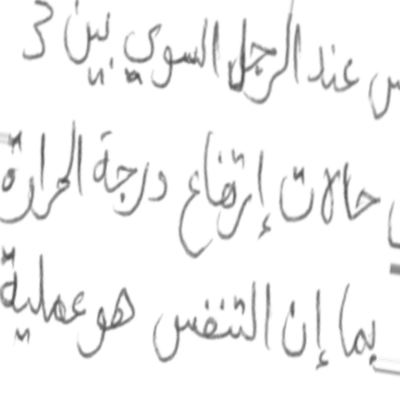 عند الرجل السوي بين 3
حالات إرتفاع درجة الحرارة
بما إن التنفس هو عملية